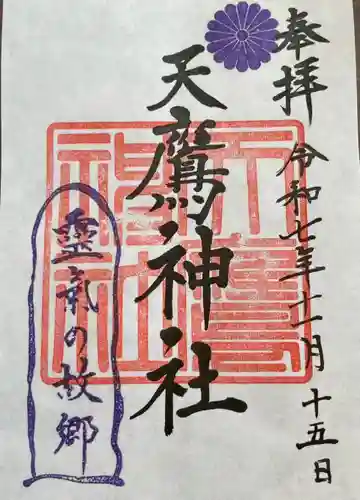 奉拝
令和七年十一月十五日
天鷹神社
天鷹神社
靈氣の故郷